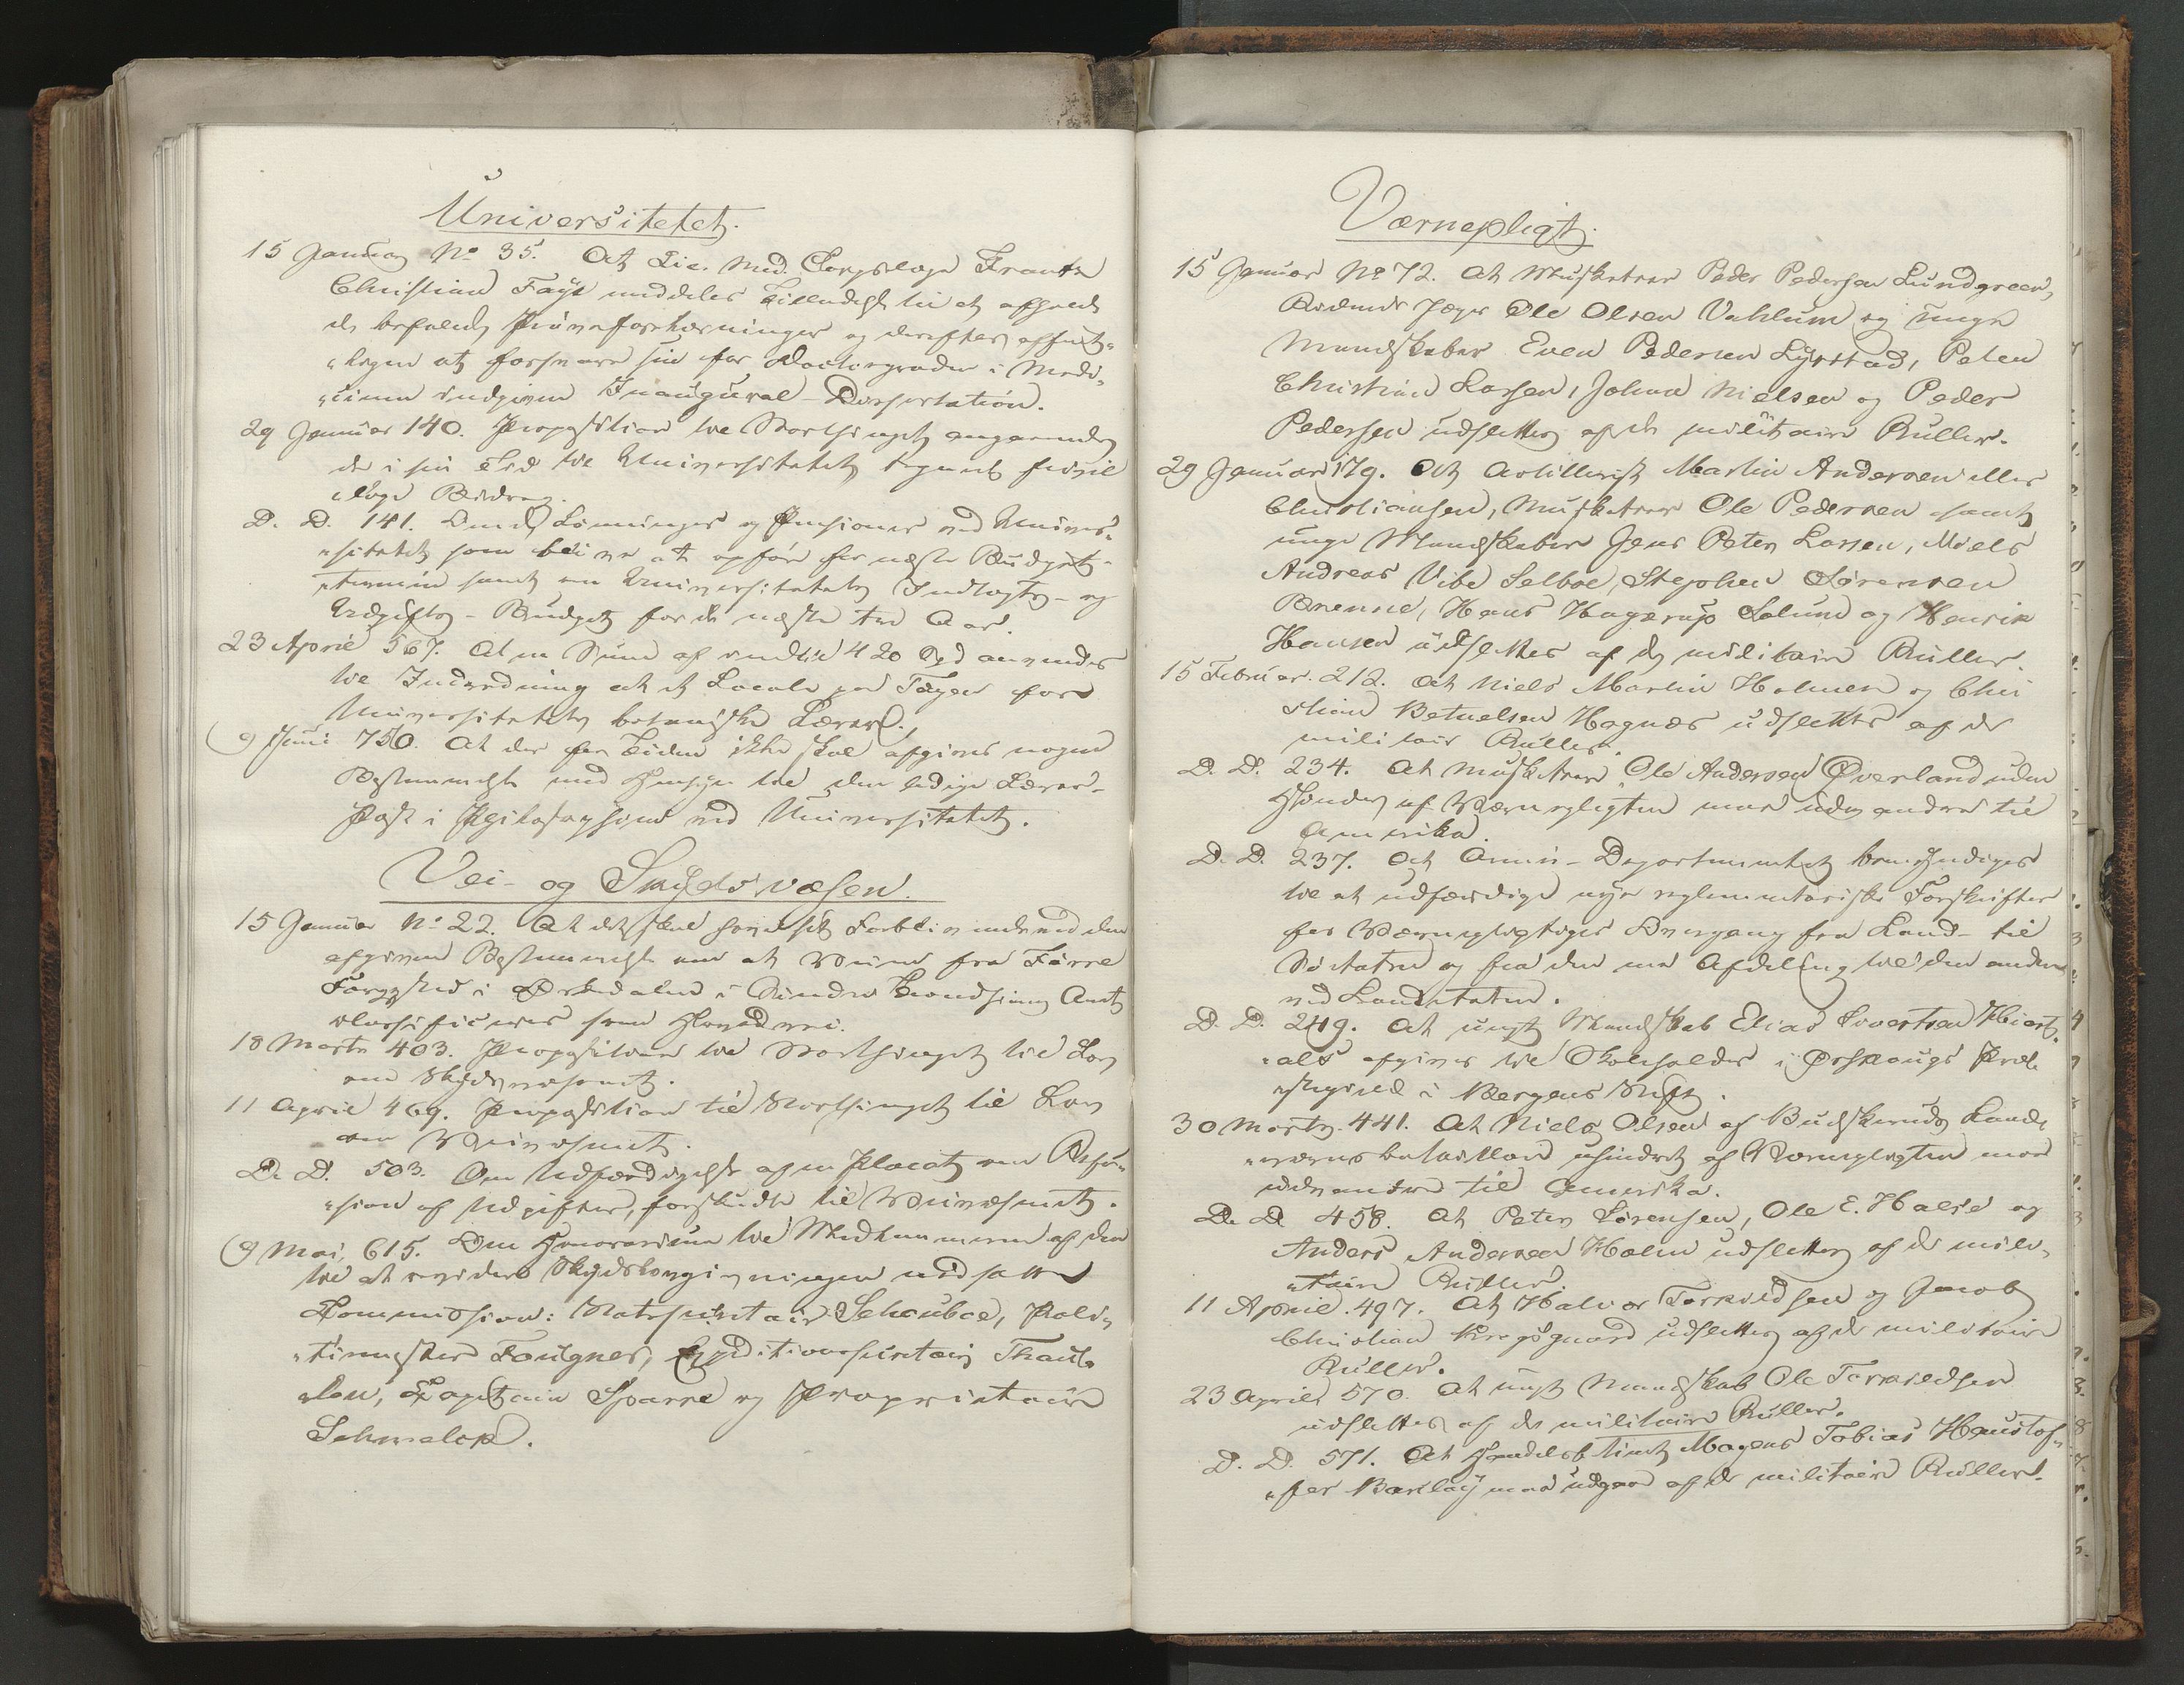 Universitetet.
15 Januar No 35. At Lic. Med. Corpslæge Frantz
Christian Faye meddeles Tilladelse til at afholde
de befalede Prøveforelæsninger og derefter offent-
"ligen at forsvare sin for Doctorgraden i Medi-
"cinen indgivne Inaugural-Dissertation.
29 Januar 140. Proposition til Storthinget angaaende
de i sin Tid til Universitetet tegnede
Bidrag.
D. D. 141. Lønninger og Pensioner ved Univer-
"sitetet som blive at opføre for næste Budget-
"termin samt om Universitetets Indtægts- og
Udgifts-Budget for de næste tre Aar.
23 April 567. At en Sum af indtil 420 Spd anvendes
til Indredning af et Locale paa Tøyen for
Universitetets botaniske Lærer.
9 Juni 750. At der for Tiden ikke skal afgives nogen
Bestemmelse med Hensyn til den ledige Lærer-
Post i Philosophien ved Universitetet.
Vei- og Skydsvæsen.
15 Januar No 22. At det skal have sit Forblivende ved den
afgivne Bestemmelse om at Veien fra Fårre
i Ørkedalen i Søndre Trondhjems Amt
classificeres som Hovedvei.
18 Marts 403. Proposition til Storthinget til Lov
om Skydsvæsenet.
11 April 469. Proposition til Storthinget til Lov
om Veivæsenet.
D. D. 503. Om Udfærdigelse af en Placat om Refu-
"sion af Udgifter, forskudte til Veivæsenet.
9 Mai. 615. Om Honorarium til Medlemmerne af den
til at revidere Skydslovgivningen nedsatte
Commission: Statssecretair Schouboe, Poli-
"timester Fougner, Expeditionssecretair Thaul-
"low, Capitain Sparre og Proprietair
Schmelck.
Værnepligt.
15 Januar No 72. At Musketeer Peder Pedersen Lundgreen,
Ridende Jæger Ole Olsen Vahlum og unge
Mandskaber Even Pedersen Lystad, Peter
Christian Larsen, Johan Nielsen og Peder
Pedersen udslettes af de militaire Ruller.
29 Januar 179. At Artillerist Martin Andersen eller
Christiansen, Musketeer Ole Pedersen samt
unge Mandskaber Jens Peter Larsen, Niels
Andreas Vibe Selboe, Stephen Sørensen
Brenne, Hans Hagerup Solum og Henrik
Hansen udslettes af de militaire Ruller.
15 Februar. 212. At Niels Martin Holmen og Chri
stian Betuelsen Hagnæs udslettes af de
militair Ruller.
D. D. 234. At Musketeer Ole Andersen Øverland uden
Hinder af Værnepligten maa udvandre til
Amerika.
D. D. 237. At Armee-Departementet bemyndiges
til at udfærdige nye reglementariske Forskrifter
for Værnepligtiges Overgang fra Land- til
Søetaten og fra den ene Afdeling til den anden
ved Landetaten.
D. D. 249. At ungt Mandskab Elias Sivertsen Hiort-
"als afgives til Skoleholder i Ørskougs Præste
"gjeld i Bergens Stift.
30 Marts. 441. At Niels Olsen af Budskeruds Land-
"værnsbataillon uhindret af Værnepligten maa
udvandre til Amerika.
D. D. 458. At Peter Sørensen, Ole E. Halse og
Anders Andersen Holm udslettes af de mili-
"taire Ruller.
11 April. 497. At Halvor Torkildsen og Jacob
Christian udslettes af de militaire
Ruller.
23 April 570. At ungt Mandskab Ole Torkildsen
udslettes af de militaire Ruller.
D. D. 571. At Handelsbetient Mogens Tobias Hanstof-
"fer Barclay maa udgaa af de militaire Ruller.